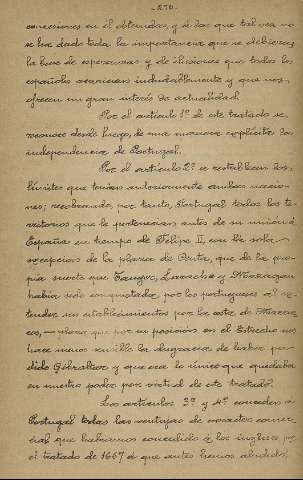 -270-
concesiones en él obtenidas, y á las que tal vez no
se ha dado toda la importancia que se debiera,
la base de esperanzas y de ilusiones que todos los
españoles acarician indudablemente y que nos
ofrecen un gran interés de actualidad.
Por el artículo 1º de este tratado se
reconoce desde luego, de una manera explícita la
independencia de Portugal.
Por el artículo 2º se restablecen los
límites que tenían anteriormente ambas nacio-
nes; recobrando, por tanto, Portugal todos los te-
rritorios que le pertenecían antes de su unión á
España en tiempo de Felipe II, con la sola
excepción de la plaza de Ceuta, que de la pro-
pia suerte que Tanger, Larache y Mazagan
había sido conquistada por los portugueses al ex-
tender sus establecimientos por la costa de Marrue-
cos, — plaza que por su posición en el Estrecho nos
hace menos sensible la desgracia de haber per-
dido Gibraltar y que era lo único que quedaba
en nuestro poder por virtud de este tratado.
Los artículos 3º y 4º conceden á
Portugal todas las ventajas de carácter comer-
cial que habíamos concedido á los ingleses por
el tratado de 1667 á que antes hemos aludido,